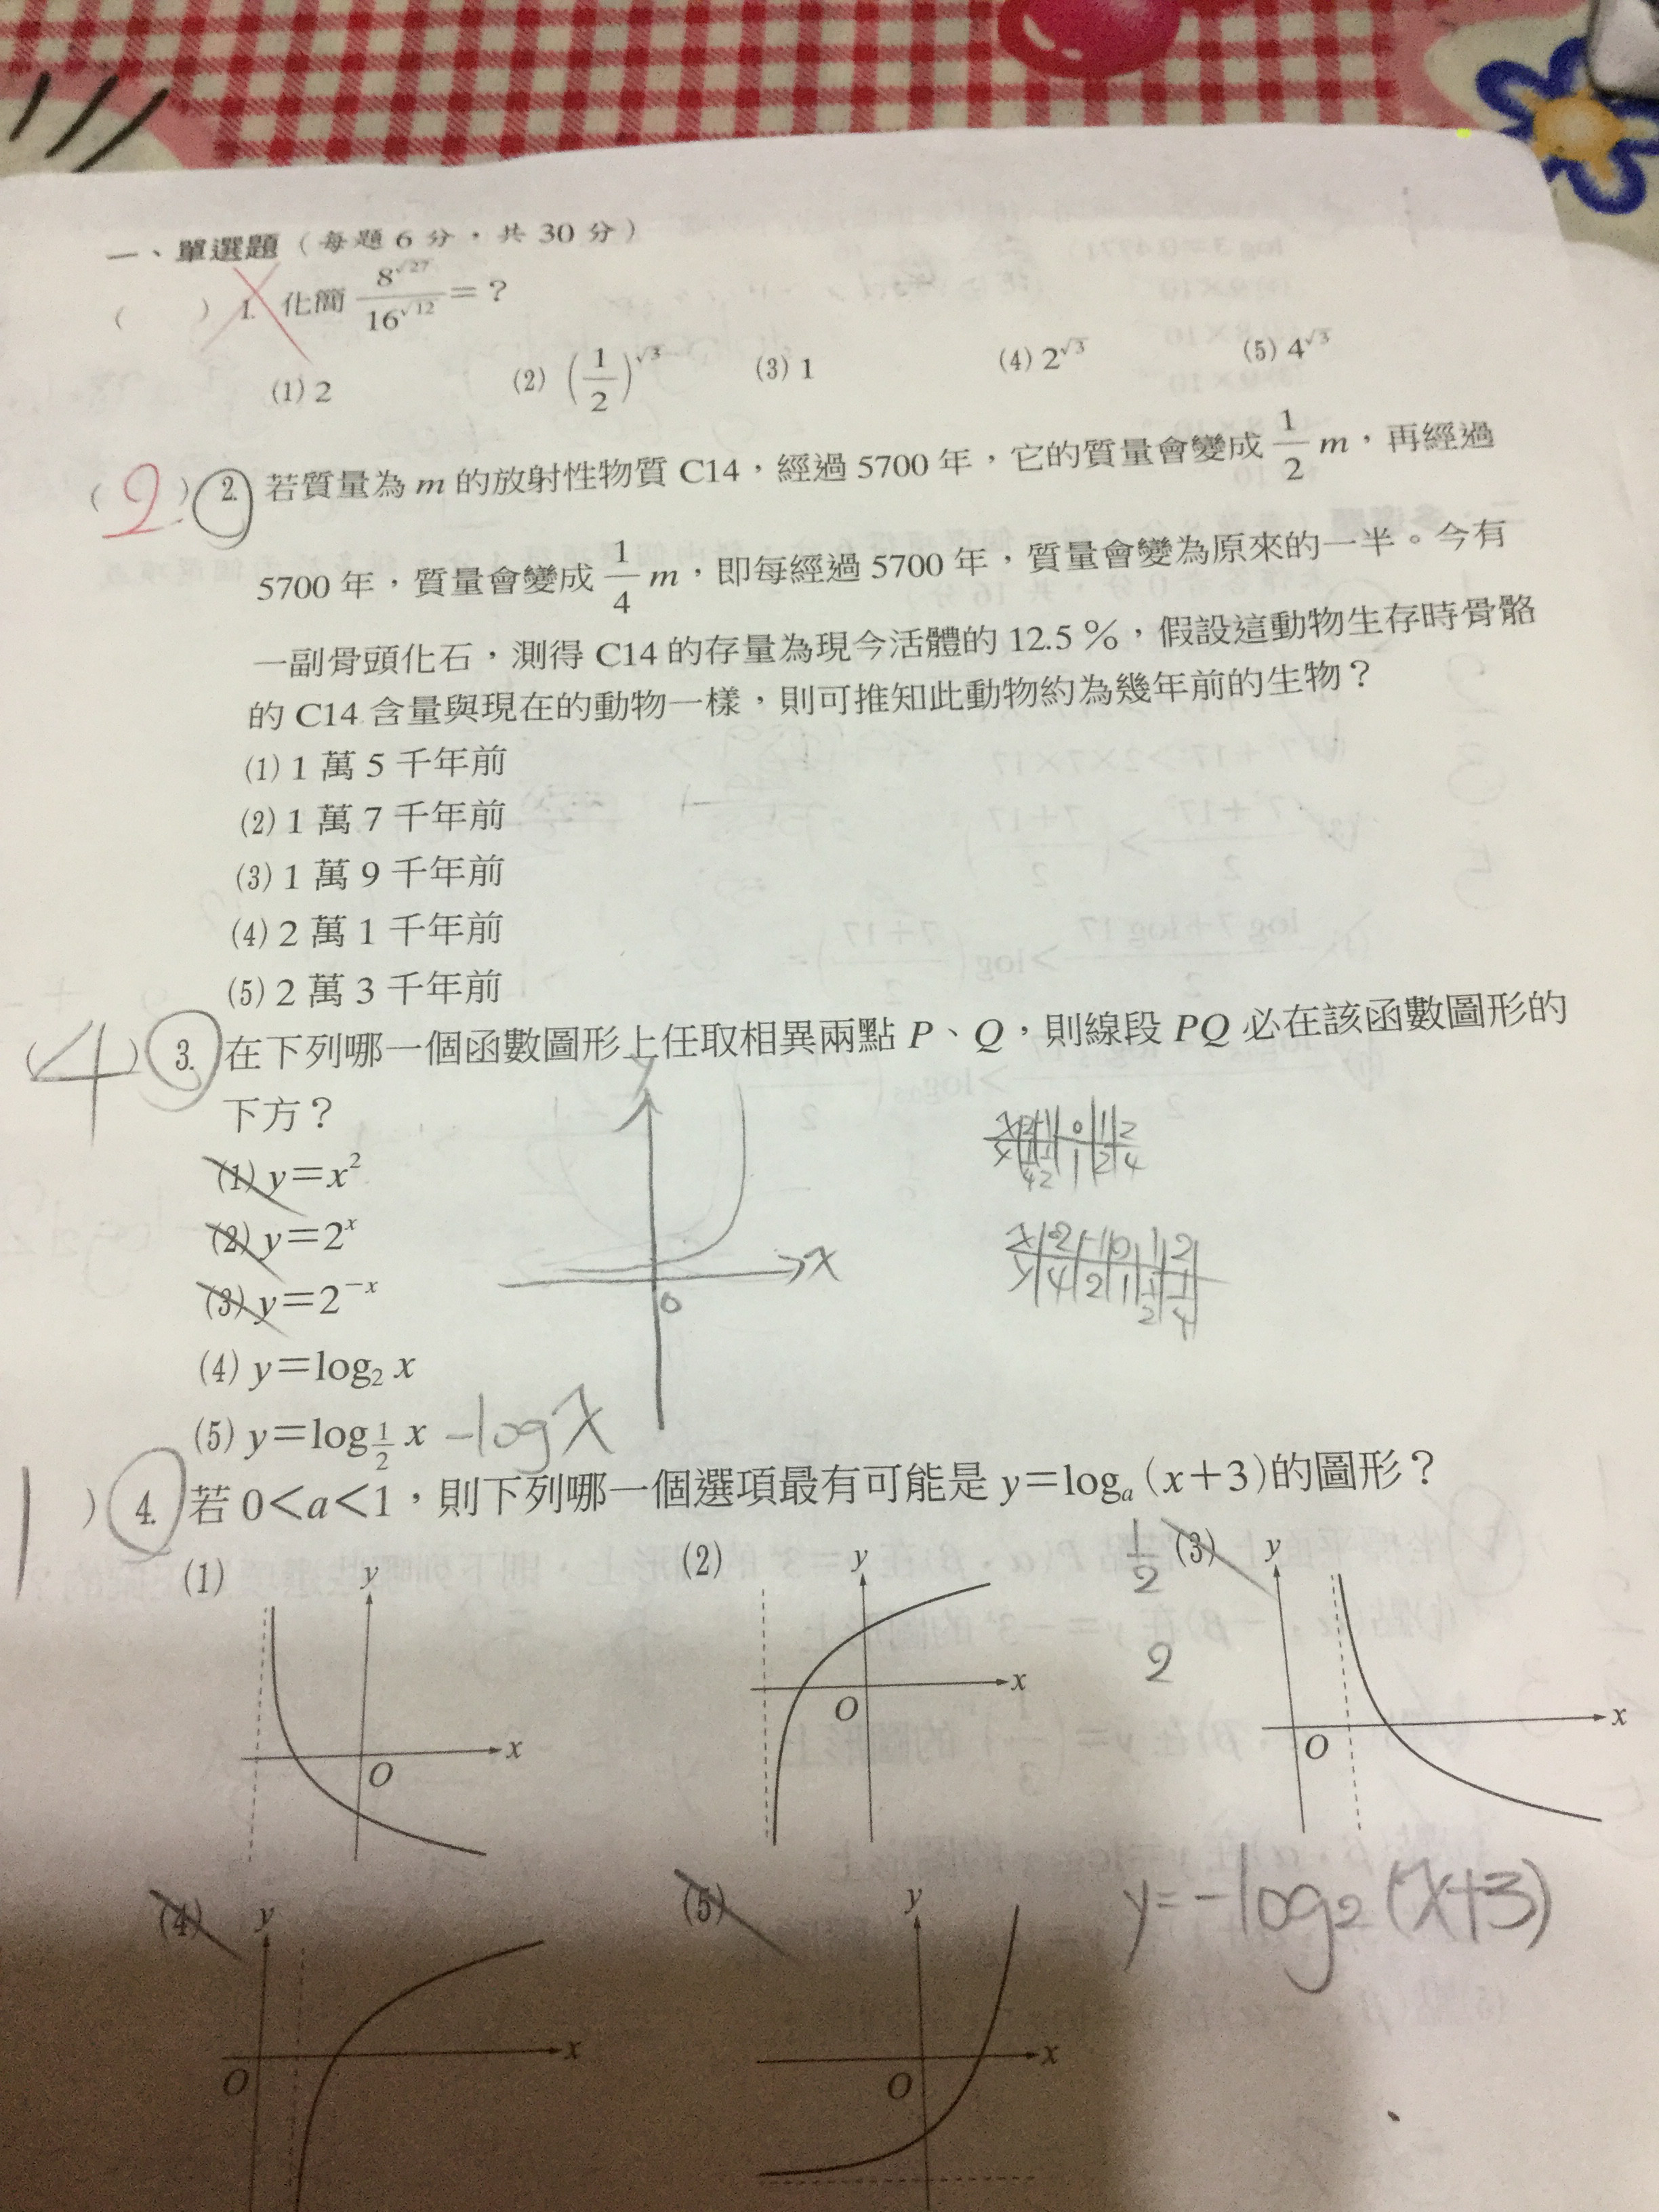 一、單選題（每題 6 分，共 30 分）
(　　) 1. 化簡 8^√27 / 16^√12 = ?
(1) 2　(2) (1/2)^√3　(3) 1　(4) 2^√3　(5) 4^√3
( 2 ) 2. 若質量為 m 的放射性物質 C14，經過 5700 年，它的質量會變成 1/2 m，再經過
5700 年，質量會變成 1/4 m，即每經過 5700 年，質量會變為原來的一半。今有
一副骨頭化石，測得 C14 的存量為現今活體的 12.5 %，假設這動物生存時骨骼
的 C14 含量與現在的動物一樣，則可推知此動物約為幾年前的生物？
(1) 1 萬 5 千年前
(2) 1 萬 7 千年前
(3) 1 萬 9 千年前
(4) 2 萬 1 千年前
(5) 2 萬 3 千年前
( 4 ) 3. 在下列哪一個函數圖形上任取相異兩點 P、Q，則線段 PQ 必在該函數圖形的
下方？
(1) y=x²
(2) y=2^x
(3) y=2^−x
(4) y=log₂ x
(5) y=log_1/2 x −log x
y
x
0
x -2 -1 0 1 2
y 1/4 1/2 1 2 4
x -2 -1 0 1 2
y 4 2 1 1/2 1/4
1 ) 4. 若 0<a<1，則下列哪一個選項最有可能是 y=log_a (x+3)的圖形？
(1) y x O
(2) y x O
1/2
2
(3) y x O
(4) y x O
(5) y x O
y=-log₂(x+3)